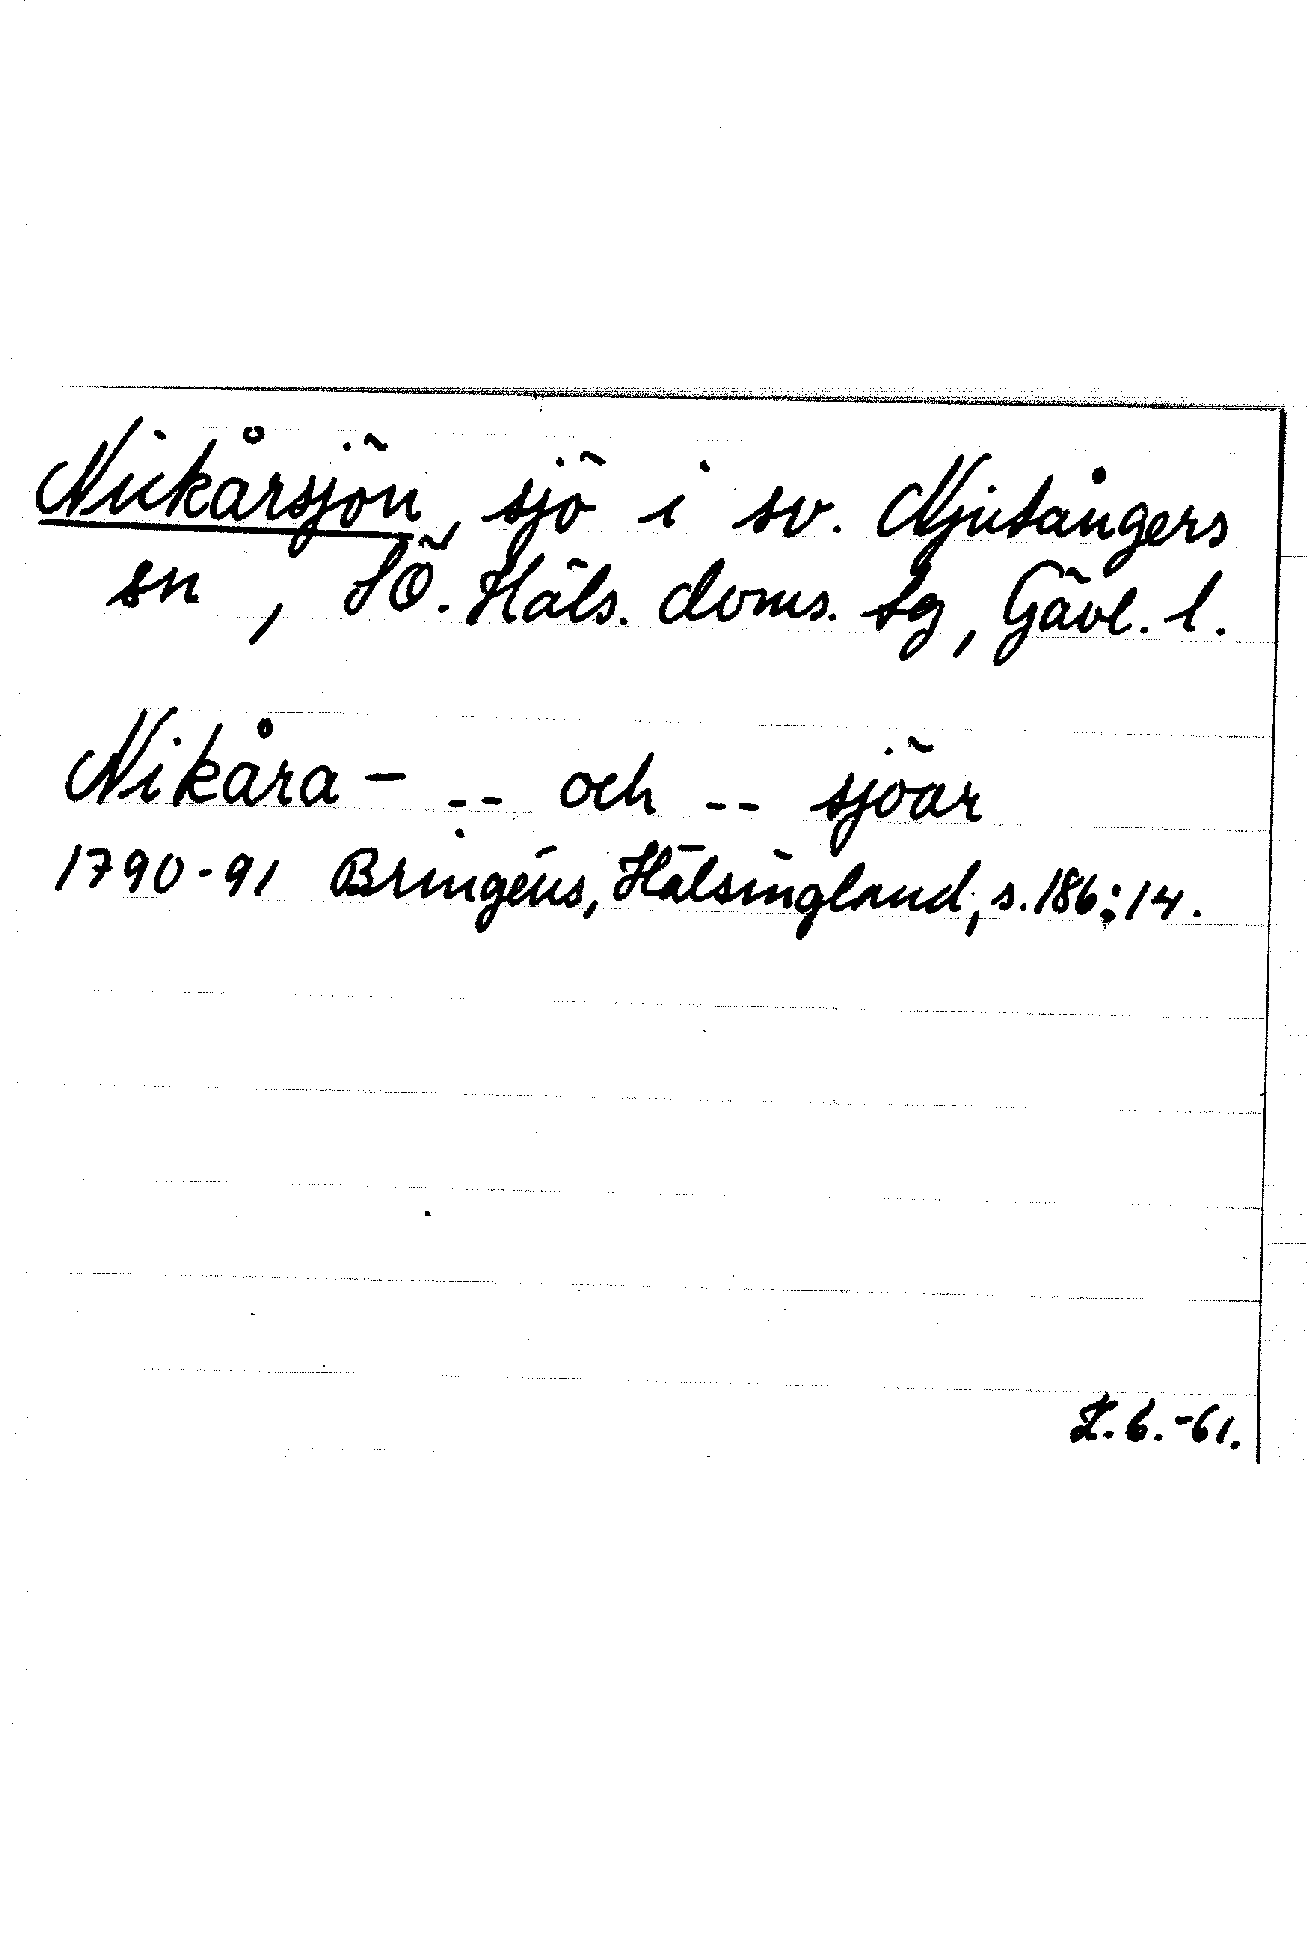 Nickårsjön, sjö i sv. Njutångers
sn, SÖ. Häls. doms. sg, Gävl. l.
Nikåra- -- och -- sjöar
1790-91 Bringéus, Hälsingland, s. 186:14.
Z. 6. -61.